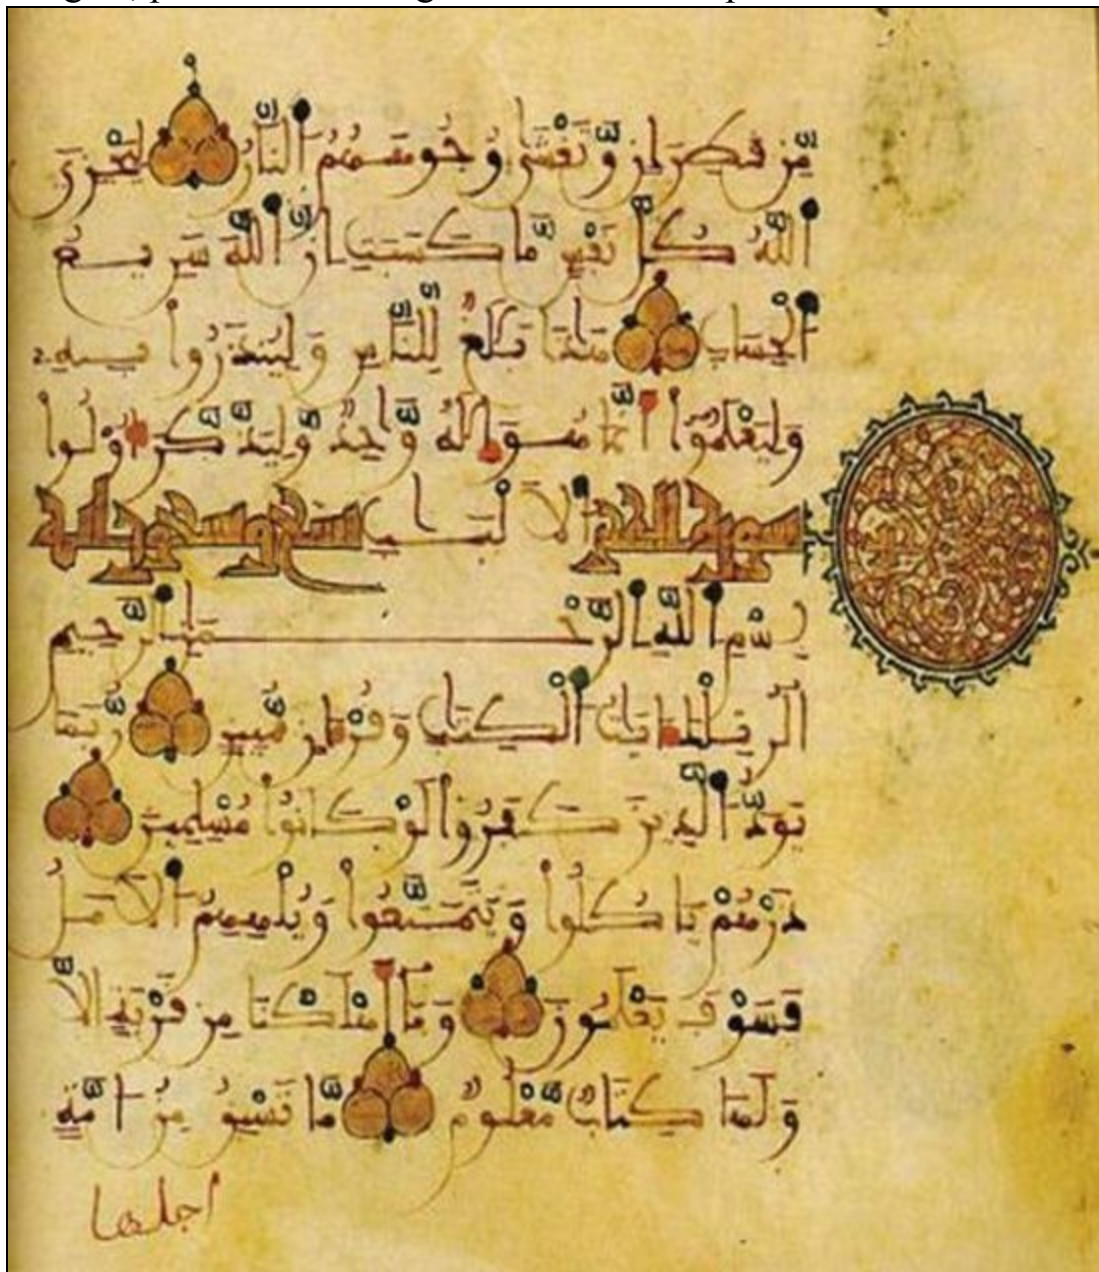 مِّن قَطِرَانٍ وَّتَغْشَىٰ وُجُوهَهُمُ النَّارُ لِيَجْزِيَ
اللَّهُ كُلَّ نَفْسٍ مَّا كَسَبَتِ انَّ اللَّهَ سَرِيعُ
الْحِسَابِ هَٰذَا بَلَٰغٌ لِّلنَّاسِ وَلِيُنذَرُوا بِهِ
وَلِيَعْلَمُوا أَنَّمَا هُوَ إِلَٰهٌ وَّاحِدٌ وَّلِيَذَّكَّرَ أُوْلُوا
سورة الحجر الالْبَٰبِ تسع وتسعون اية
بِسْمِ اللَّهِ الرَّحْمَٰنِ الرَّحِيمِ
الَر تِلْكَ ءَايَٰتُ الْكِتَٰبِ وَقُرْءَانٍ مُّبِينٍ رُّبَمَا
يَوَدُّ الَّذِينَ كَفَرُوا لَوْ كَانُوا مُسْلِمِينَ
ذَرْهُمْ يَاكُلُوا وَيَتَمَتَّعُوا وَيُلْهِهِمُ الَامَلُ
فَسَوْفَ يَعْلَمُونَ وَمَا أَهْلَكْنَا مِن قَرْيَةٍ الَّا
وَلَهَا كِتَابٌ مَّعْلُومٌ مَّا تَسْبِقُ مِنُ امَّةٍ
اجلها